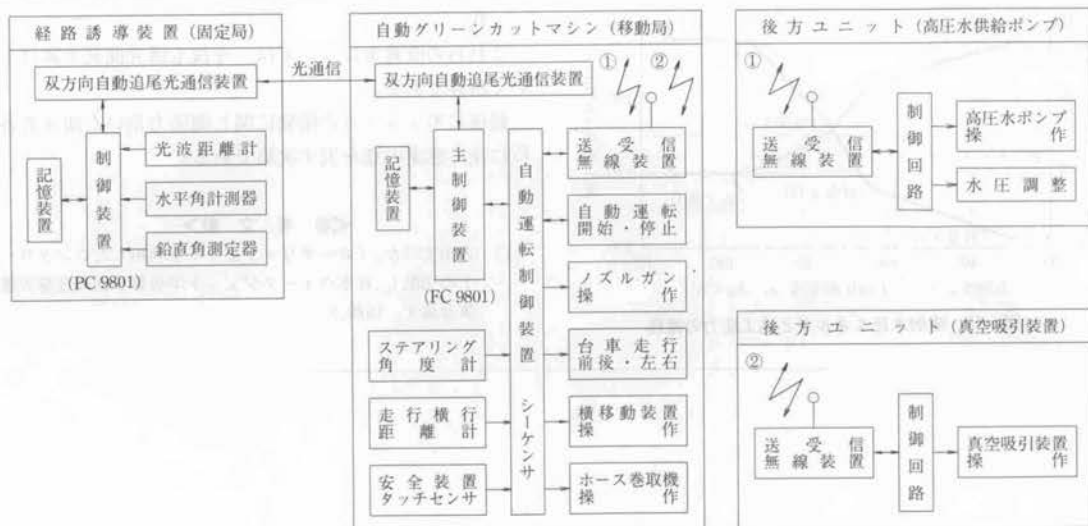 経路誘導装置(固定局)
双方向自動追尾光通信装置
記憶装置
制御装置
(PC 9801)
光波距離計
水平角計測器
鉛直角測定器
光通信
自動グリーンカットマシン(移動局)
双方向自動追尾光通信装置
①
②
記憶装置
主制御装置
(FC 9801)
自動運転制御装置
シーケンサ
ステアリング
角度計
走行横行
距離計
安全装置
タッチセンサ
送受信
無線装置
自動運転
開始・停止
ノズルガン
操作
台車走行
前後・左右
横移動装置
操作
ホース巻取機
操作
後方ユニット(高圧水供給ポンプ)
①
送受信
無線装置
制御回路
高圧水ポンプ
操作
水圧調整
後方ユニット(真空吸引装置)
②
送受信
無線装置
制御回路
真空吸引装置
操作